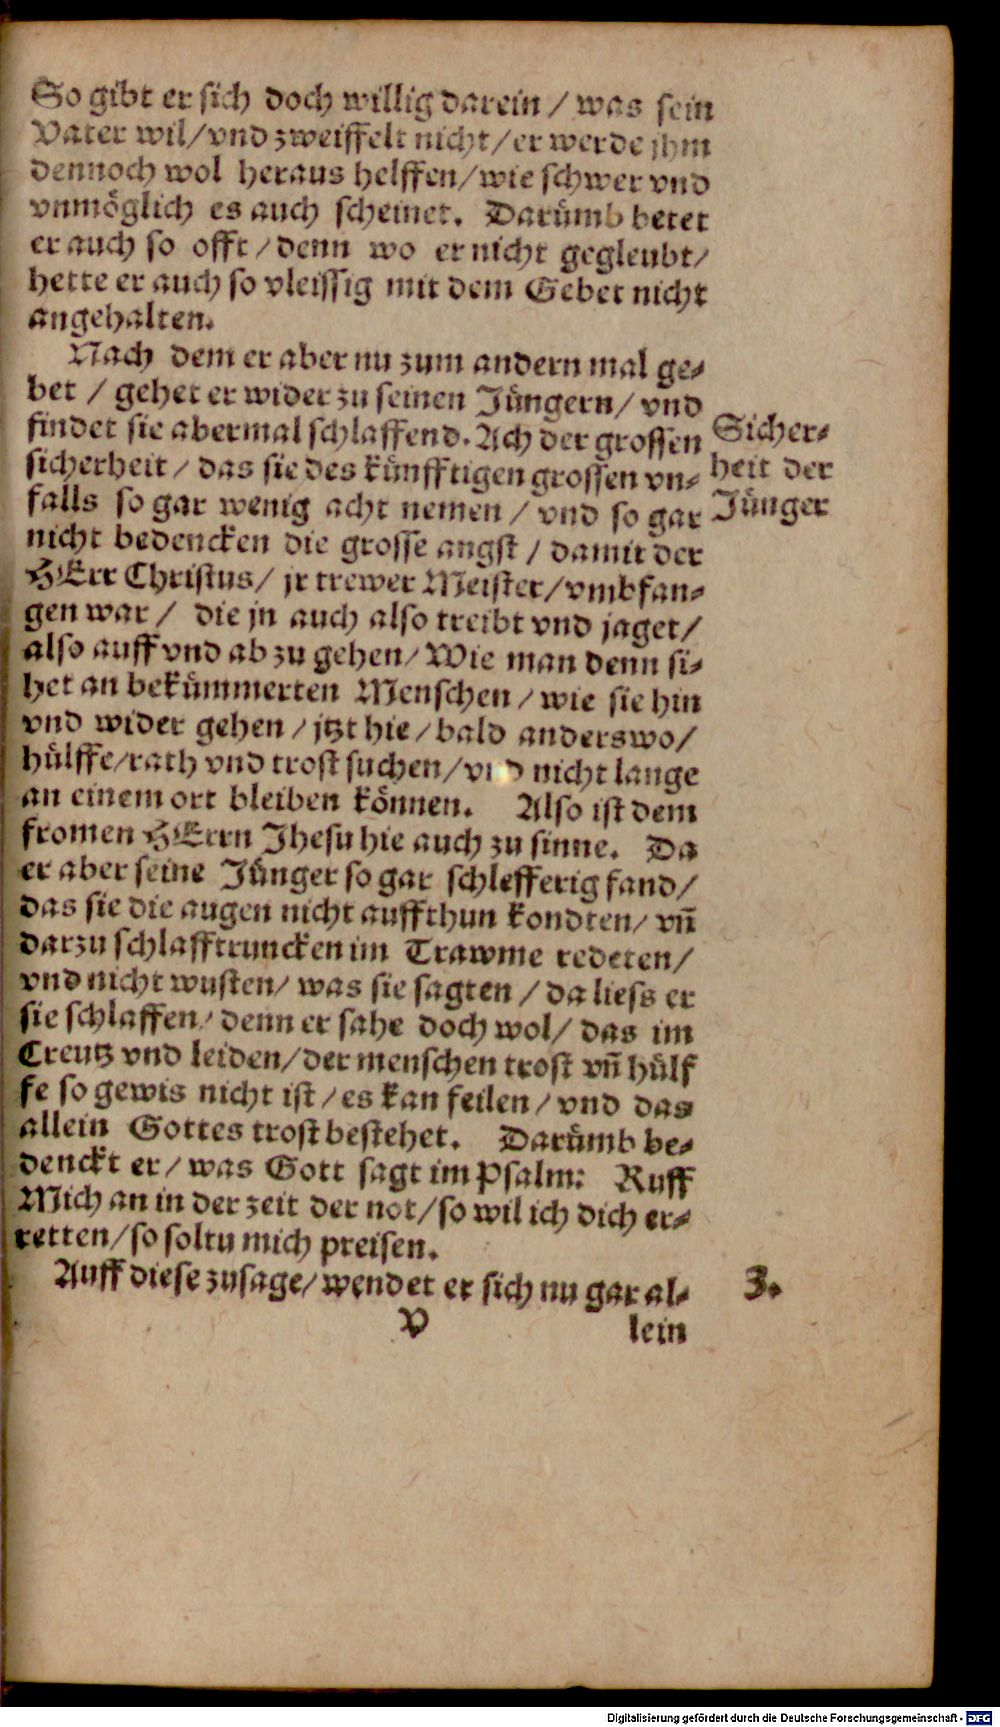 So gibt er sich doch willig darein / was sein
Vater wil / vnd zweiffelt nicht / er werde jhm
dennoch wol heraus helffen / wie schwer vnd
vnmöglich es auch scheinet. Darümb betet
er auch so offt / denn wo er nicht gegleubt /
hette er auch so vleissig mit dem Gebet nicht
angehalten.
Nach dem er aber nu zum andern mal ge-
bet / gehet er wider zu seinen Jüngern / vnd
findet sie abermal schlaffend. Ach der grossen
sicherheit / das sie des künfftigen grossen vn-
falls so gar wenig acht nemen / vnd so gar
nicht bedencken die grosse angst / damit der
HErr Christus / jr trewer Meister / vmbfan-
gen war / die jn auch also treibt vnd jaget /
also auff vnd ab zu gehen / Wie man denn si-
het an bekümmerten Menschen / wie sie hin
vnd wider gehen / jtzt hie / bald anderswo /
hülffe / rath vnd trost suchen / vnd nicht lange
an einem ort bleiben können. Also ist dem
fromen HErrn Jhesu hie auch zu sinne. Da
er aber seine Jünger so gar schlefferig fand /
das sie die augen nicht auffthun kondten / vñ
darzu schlafftruncken im Trawme redeten /
vnd nicht wusten / was sie sagten / da liess er
sie schlaffen / denn er sahe doch wol / das im
Creutz vnd leiden / der menschen trost vñ hülf
fe so gewis nicht ist / es kan feilen / vnd das
allein Gottes trost bestehet. Darümb be-
denckt er / was Gott sagt im Psalm: Ruff
Mich an in der zeit der not / so wil ich dich er-
retten / so soltu mich preisen.
Auff diese zusage / wendet er sich nu gar al-
V lein
Sicher-
heit der
Jünger
3.
Digitalisierung gefördert durch die Deutsche Forschungsgemeinschaft - DFG